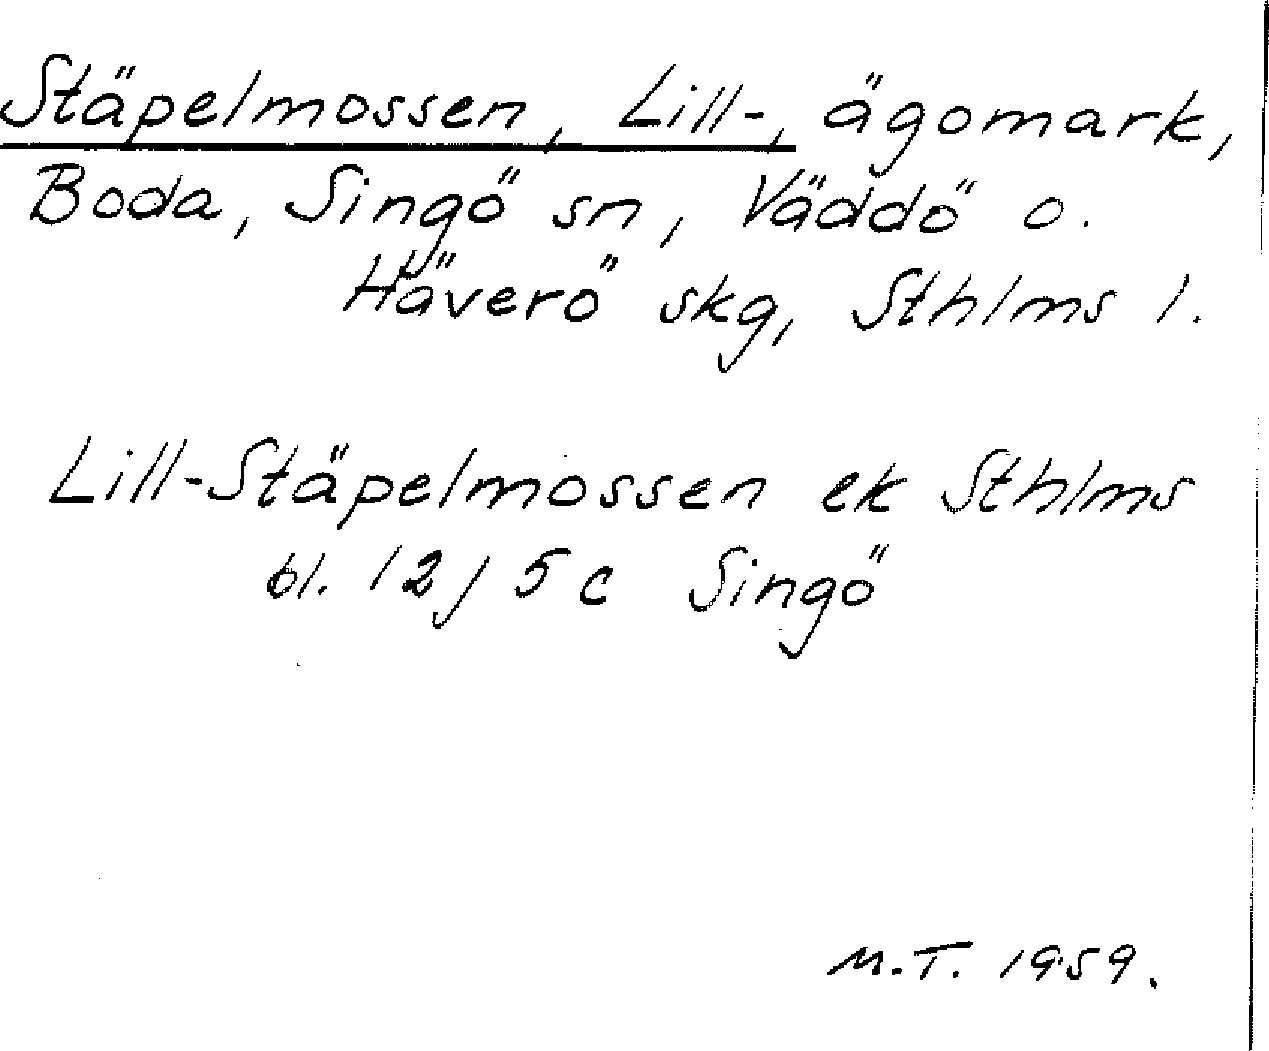 Stäpelmossen, Lill-, ägomark,
Boda, Singö sn, Väddö o.
Häverö skg, Sthlms l.
Lill-Stäpelmossen ek Sthlms
bl. 12j 5c Singö
M.T. 1959.